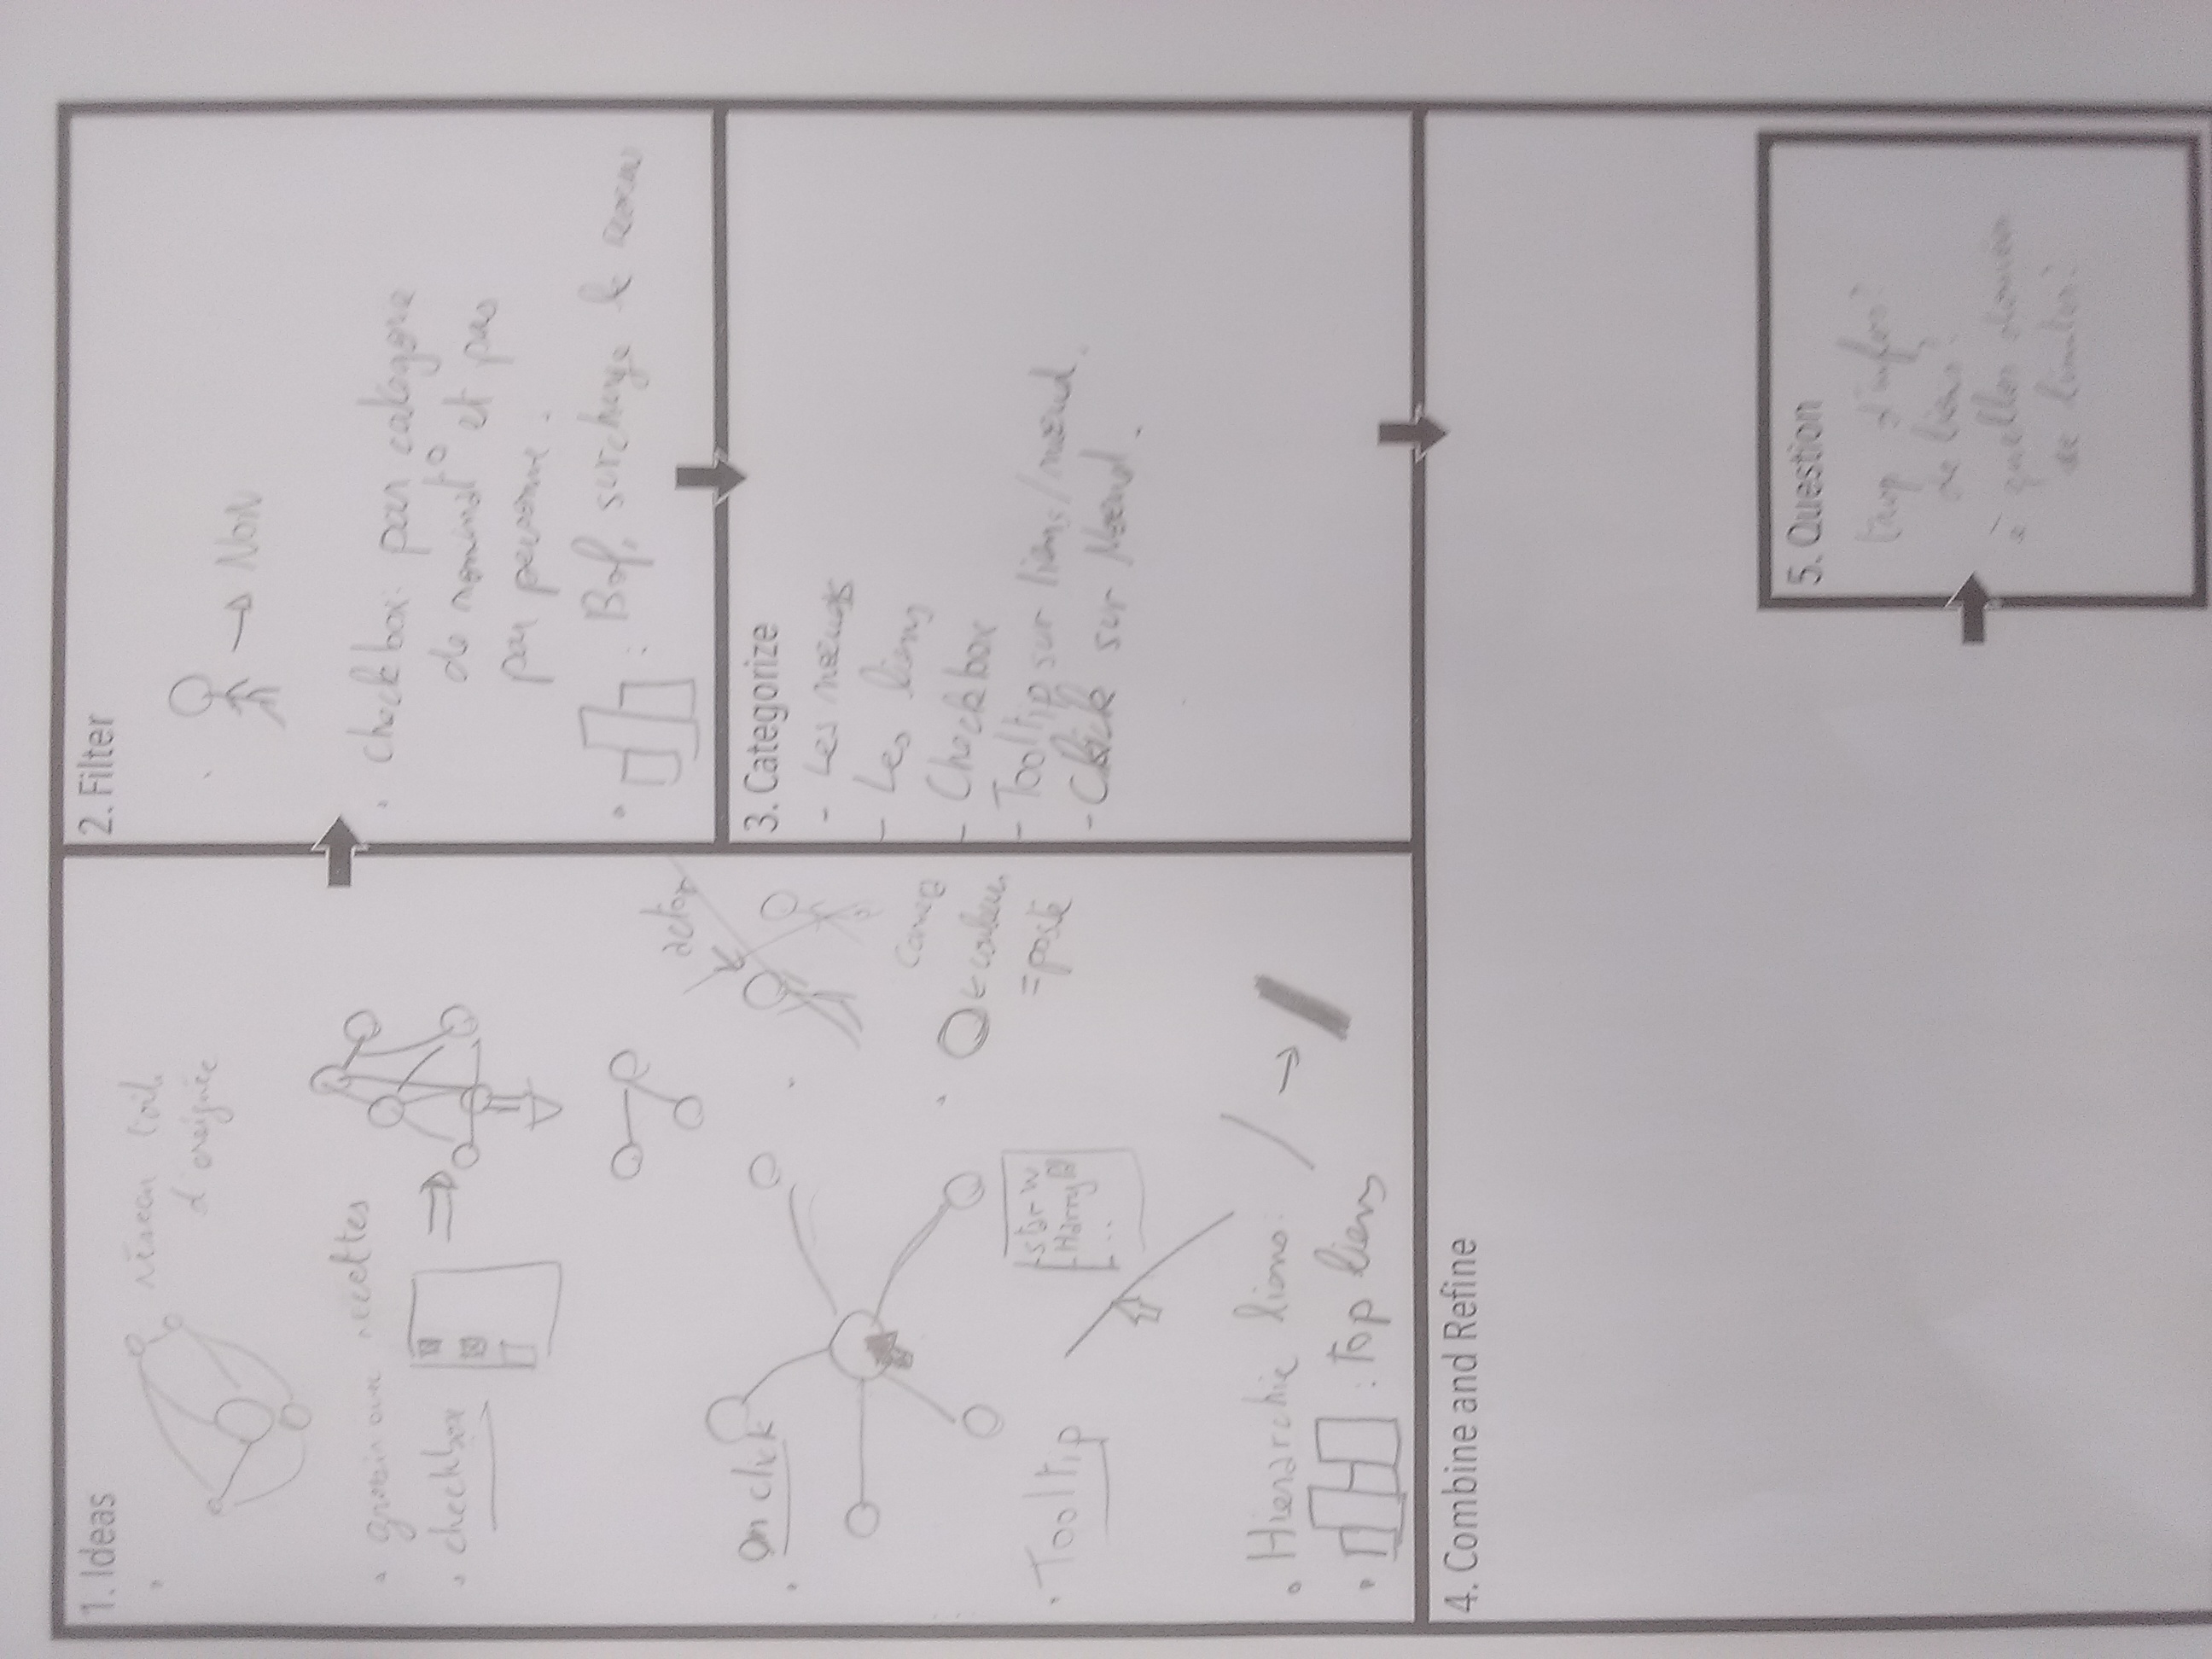 1. Ideas
réseau toile
d'araignée
recettes
checkbox
On click
actor
couleur
= poste
Tooltip
Star W
Harry P
..
Hierarchie liens:
: top liens
2. Filter
→ NON
checkbox: par categorie
de nominat° et pas
par personne.
: Bof, surcharge le reseau
3. Categorize
- Les noeuds
- Les liens
- Checkbox
- Tooltip sur liens/noeud.
- Click sur Noeud.
4. Combine and Refine
5. Question
trop d'infos?
de liens?
à quelles données
se limiter?